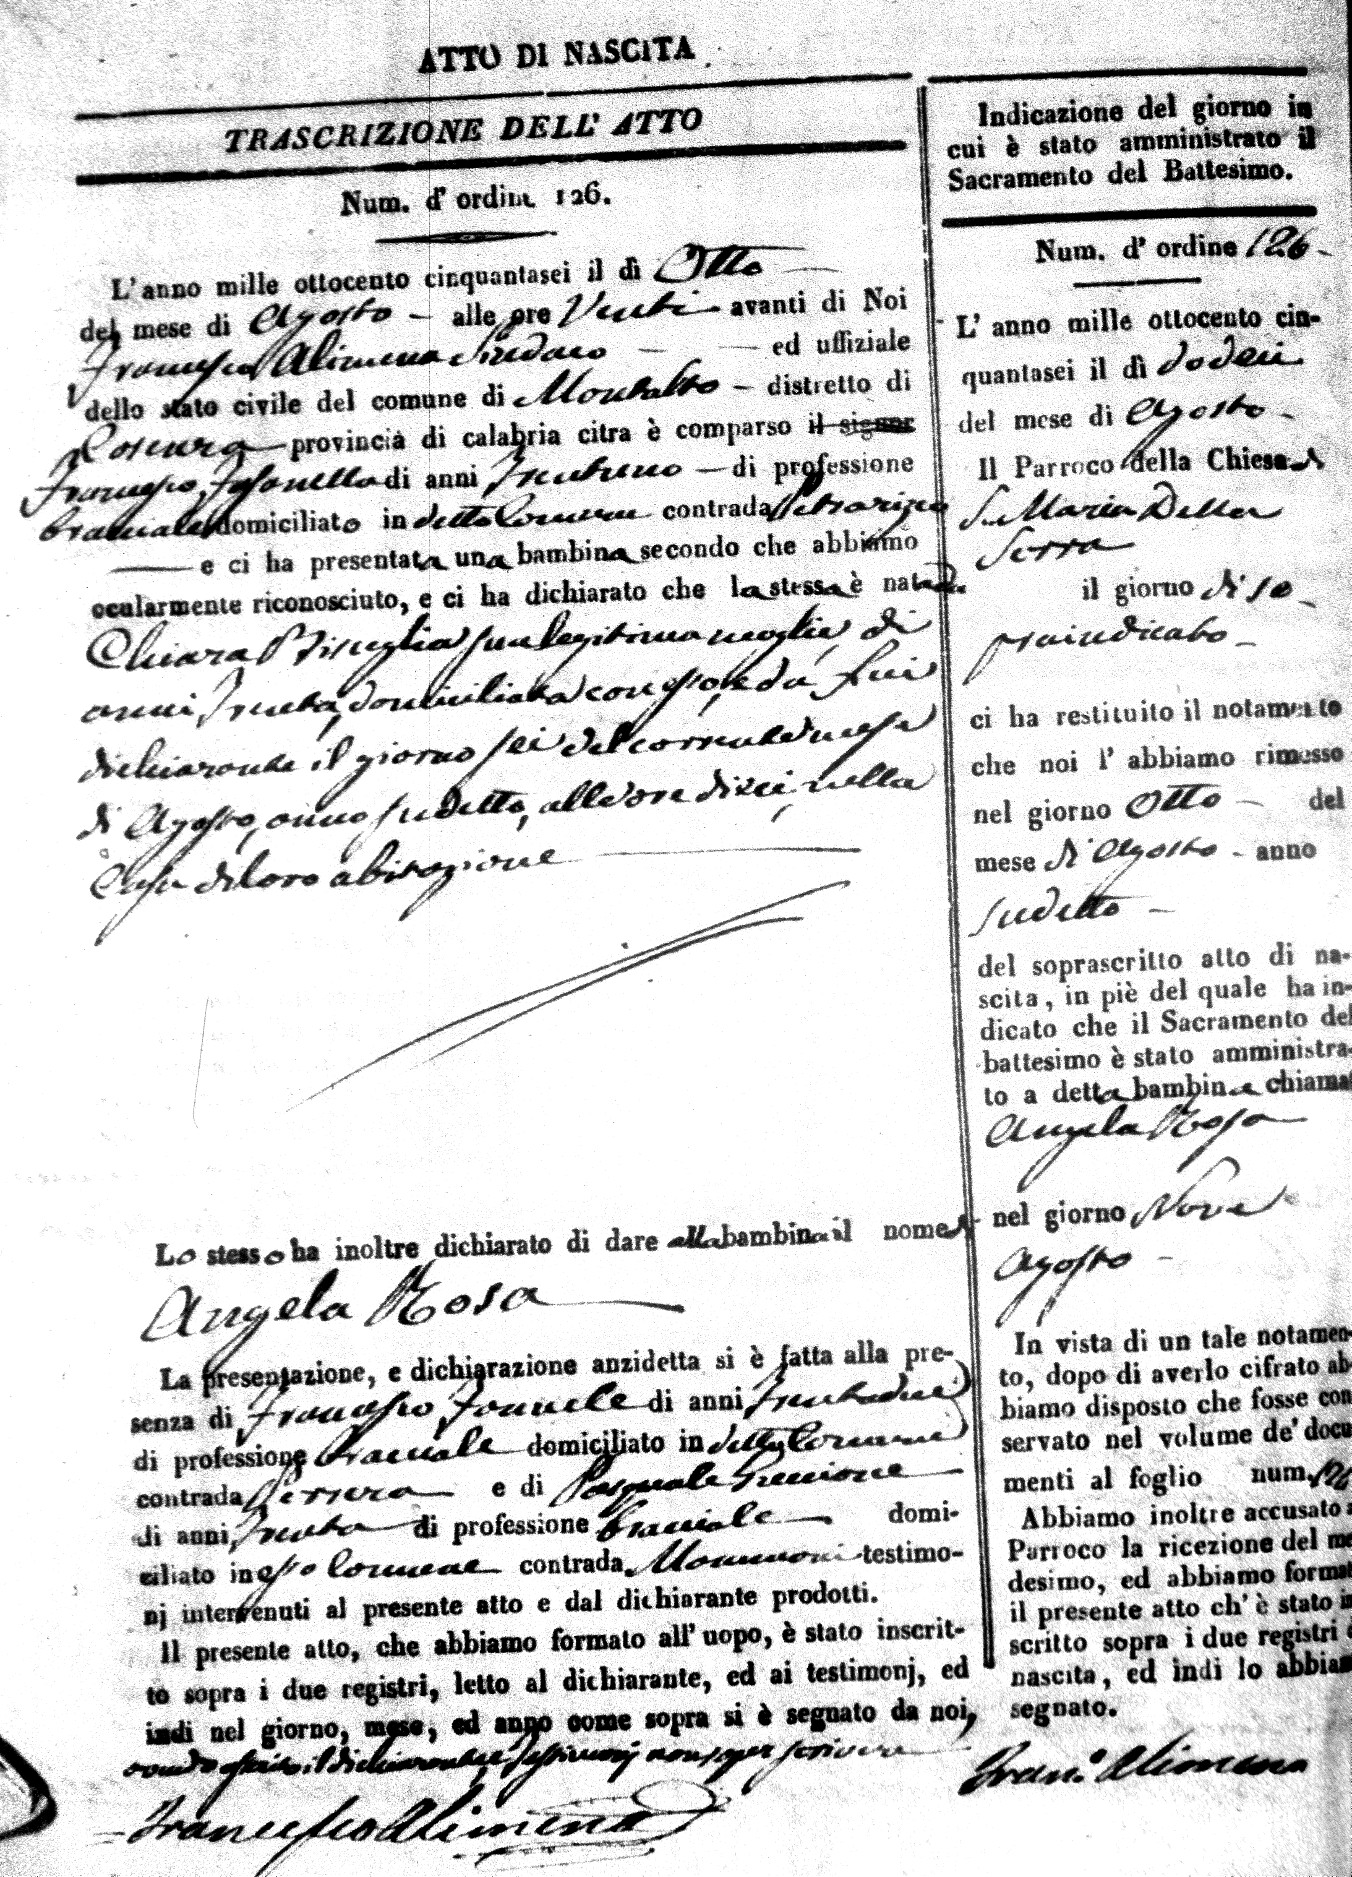 ATTO DI NASCITA
TRASCRIZIONE DELL' ATTO
Num. d' ordine 126.
L' anno mille ottocento cinquantasei il dì Otto
del mese di Agosto alle ore Venti avanti di Noi
Francesco Alimena Sindaco ed uffiziale
dello stato civile del comune di Montalto distretto di
Cosenza provincia di calabria citra è comparso il signor
Francesco di anni Trentuno di professione
bracciale domiciliato in detto Comune contrada
e ci ha presentata una bambina secondo che abbiamo
ocularmente riconosciuto, e ci ha dichiarato che la stessa è nata da
Chiara Bisceglia sua legitima moglie, di
anni Trenta, domiciliata con esso, e da lui
dichiarante il giorno sei del corrente mese
di Agosto, anno sudetto, alle ore dieci, nella
Casa di loro abitazione
Lo stesso ha inoltre dichiarato di dare alla bambina il nome di
Angela Rosa
La presentazione, e dichiarazione anzidetta si è fatta alla pre-
senza di Francesco di anni Trentadue
di professione bracciale domiciliato in detto Comune
contrada e di Pasquale
di anni Trenta di professione bracciale domi-
ciliato in esso Comune contrada testimo-
nj intervenuti al presente atto e dal dichiarante prodotti.
Il presente atto, che abbiamo formato all' uopo, è stato inscrit-
to sopra i due registri, letto al dichiarante, ed ai testimonj, ed
indi nel giorno, mese, ed anno come sopra si è segnato da noi,
il dichiarante, e Testimonj non saper scrivere
Francesco Alimena
Indicazione del giorno in
cui è stato amministrato il
Sacramento del Battesimo.
Num. d' ordine 126
L' anno mille ottocento cin-
quantasei il dì dodici
del mese di Agosto
Il Parroco della Chiesa di
S. Maria Della
Serra
il giorno di so
praindicato
ci ha restituito il notamento
che noi l' abbiamo rimesso
nel giorno Otto del
mese di Agosto anno
sudetto
del soprascritto atto di na-
scita, in piè del quale ha in-
dicato che il Sacramento del
battesimo è stato amministra-
to a detta bambina chiamat
Angela Rosa
nel giorno Nove
Agosto
In vista di un tale notamen-
to, dopo di averlo cifrato ab-
biamo disposto che fosse con
servato nel volume de' docu
menti al foglio num. 126
Abbiamo inoltre accusato a
Parroco la ricezione del me
desimo, ed abbiamo format
il presente atto ch' è stato in
scritto sopra i due registri
nascita, ed indi lo abbiam
segnato.
Fran.o Alimena